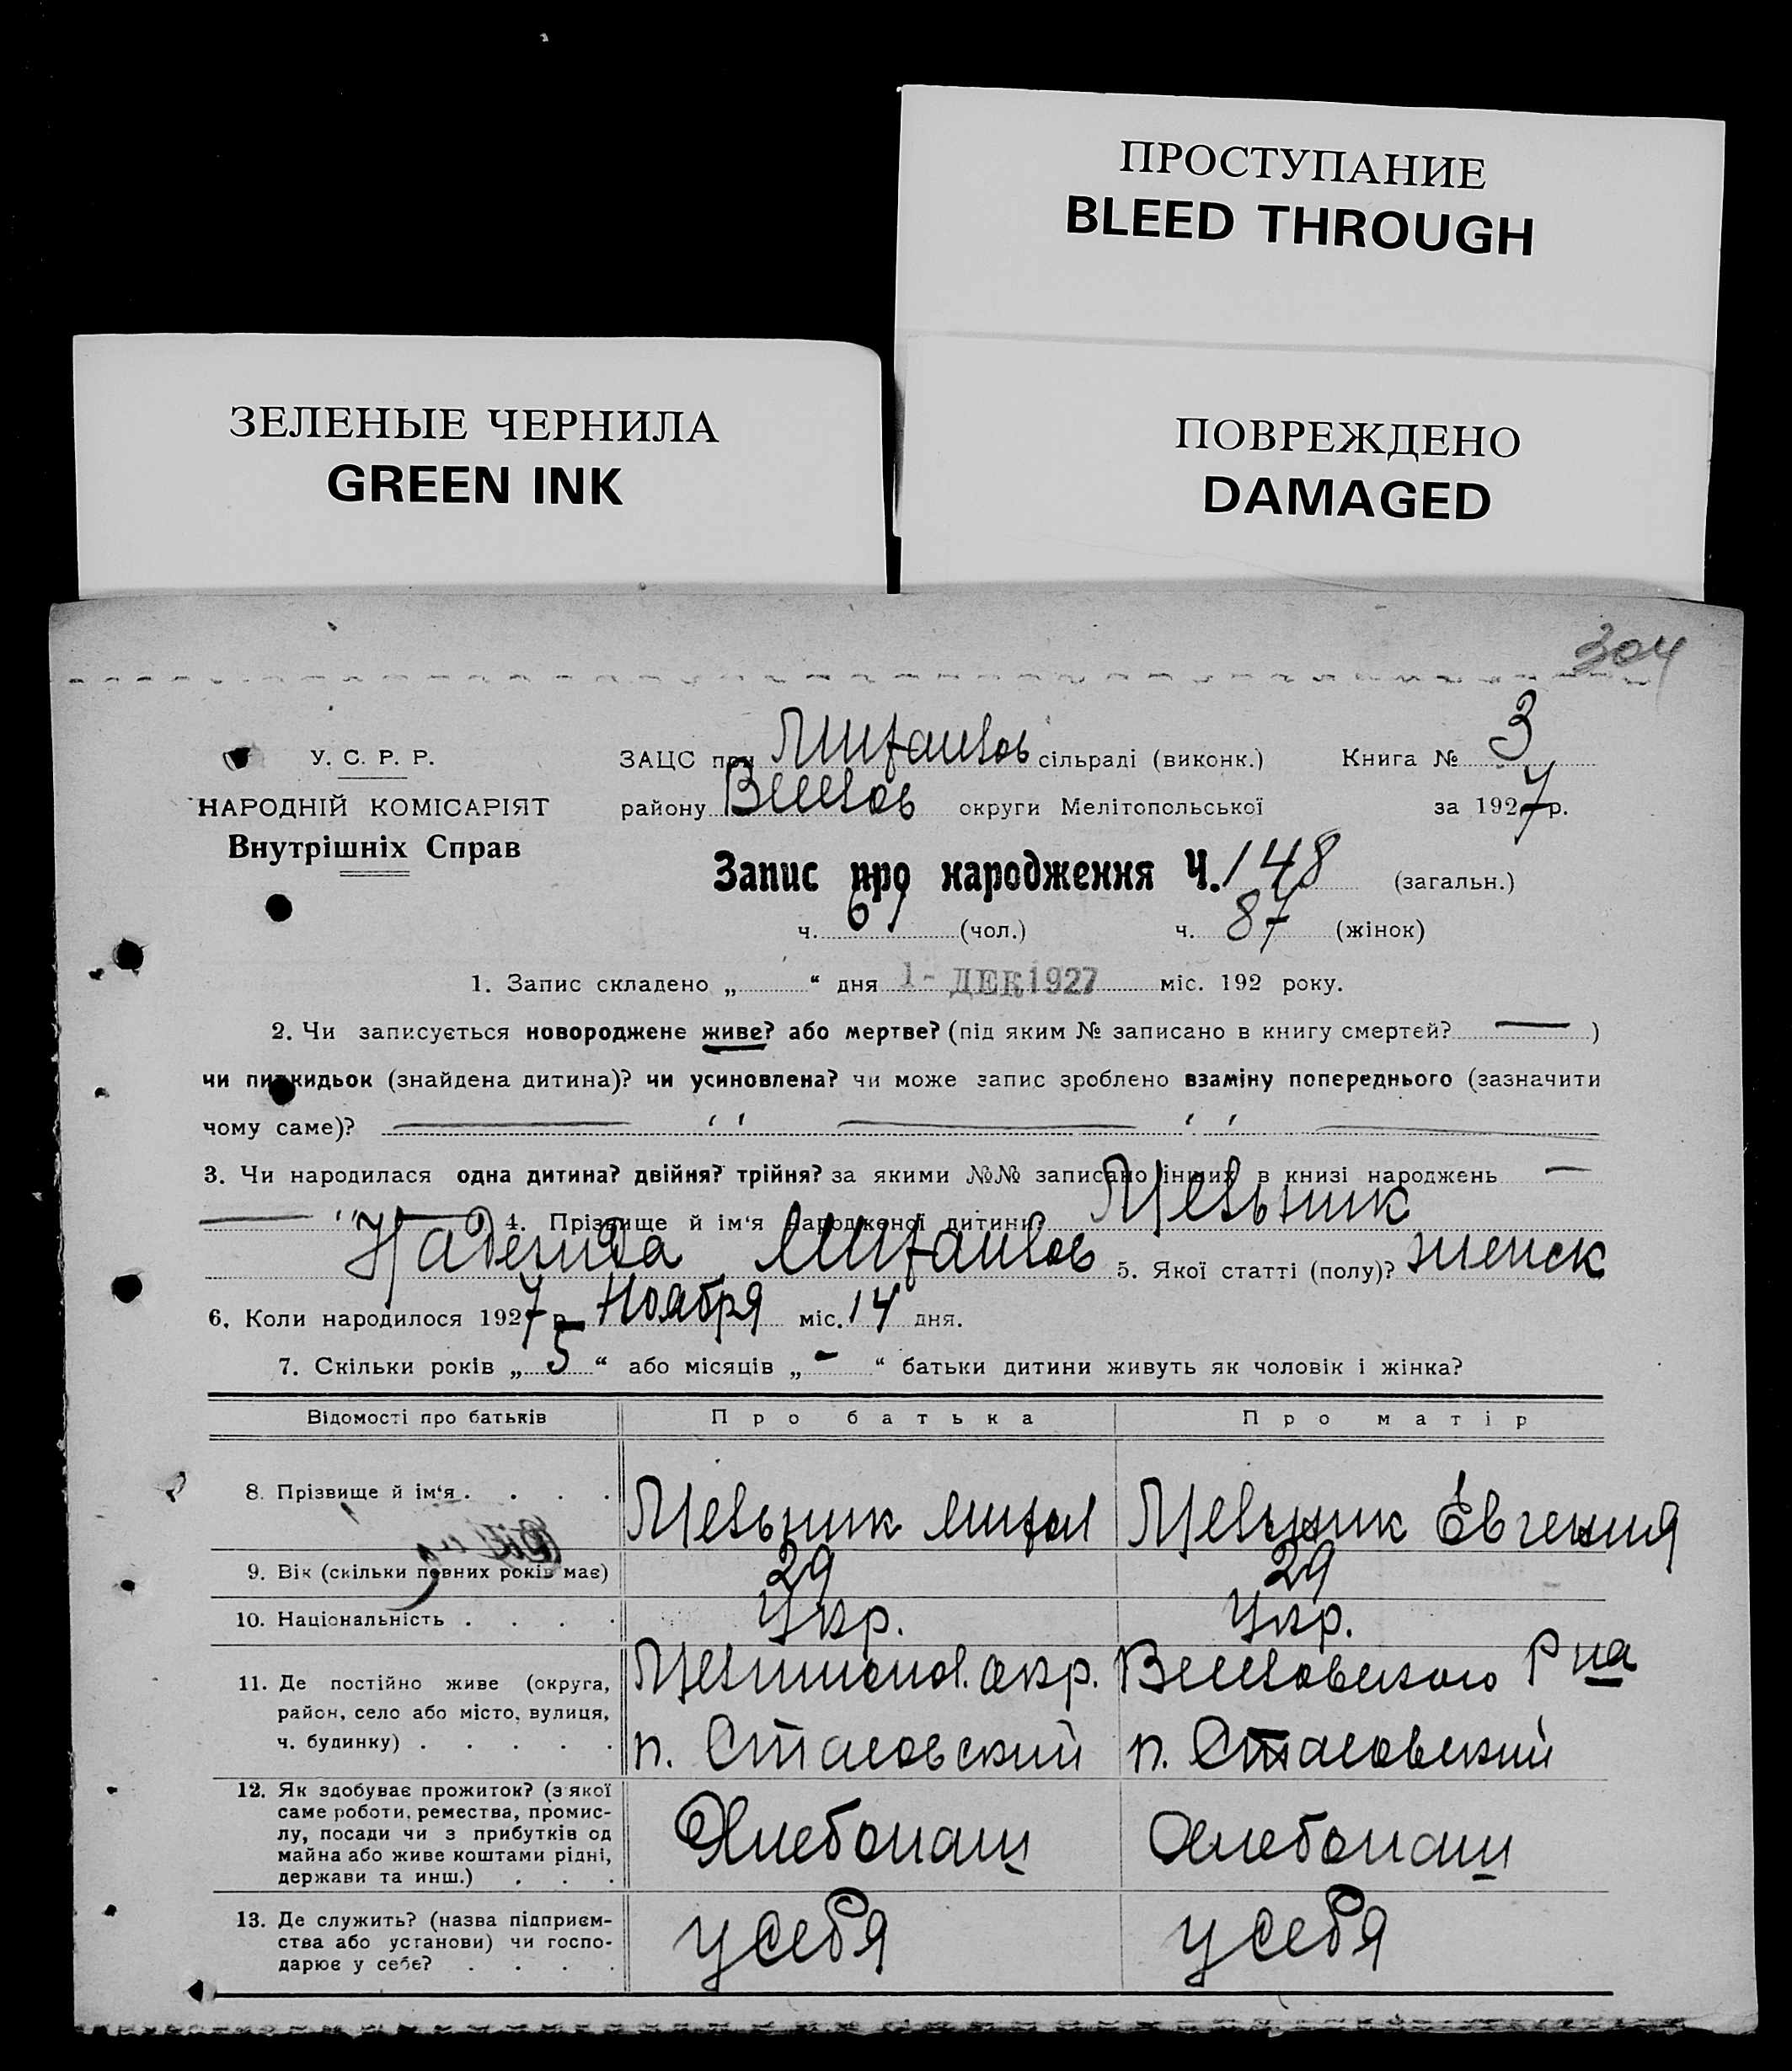 ПРОСТУПАНИЕ
BLEED THROUGH
ЗЕЛЕНЫЕ ЧЕРНИЛА
GREEN INK
ПОВРЕЖДЕНО
DAMAGED
304
У. С. Р. Р.
НАРОДНІЙ КОМІСАРІЯТ
Внутрішніх Справ
ЗАЦС при Михайлов сільраді (виконк.) Книга № 3
району Веселов округи Мелітопольської за 1927 р.
Запис про народження Ч. 148 (загальн.)
ч. 61 (чол.) ч. 87 (жінок)
1. Запис складено „ “ дня 1 - ДЕК 1927 міс. 192 року.
2. Чи записується новороджене живе? або мертве? (під яким № записано в книгу смертей? — )
чи підкидьок (знайдена дитина)? чи усиновлена? чи може запис зроблено взаміну попереднього (зазначити
чому саме)? — " — " —
3. Чи народилася одна дитина? двійня? трійня? за якими №№ записано інших в книзі народжень —
— " — 4. Прізвище й ім‘я народженої дитини? Мельник
Надежда Михайлов 5. Якої статті (полу)? женск
6. Коли народилося 1927 р. Ноября міс. 14 дня.
7. Скільки років „ 5 “ або місяців „ - “ батьки дитини живуть як чоловік і жінка?
Відомості про батьків Про батька Про матір
8. Прізвище й ім‘я . . . . Мельник Михаил Мельник Евгения
9. Вік (скільки повних років має) 29 29
10. Національність . . . . Укр. Укр.
11. Де постійно живе (округа, Мелитопол. окр. Веселовского Р на
район, село або місто, вулиця,
ч. будинку) . . . . . п. Сталовский п. Сталовский
12. Як здобуває прожиток? (з якої
саме роботи, ремества, промис-
лу, посади чи з прибутків од Хлебопаш Хлебопаш
майна або живе коштами рідні,
держави та инш.) . . .
13. Де служить? (назва підприєм-
ства або установи) чи госпо- у себя у себя
дарює у себе? . . . .